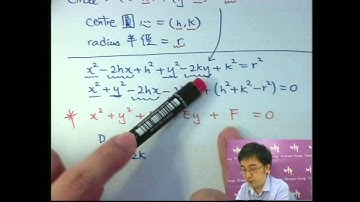 centre 圓心 = (h, k)
radius 半徑 = r
x² - 2hx + h² + y² - 2ky + k² = r²
x² + y² - 2hx - + (h² + k² - r²) = 0
* x² + y² + Ey + F = 0
D
2k